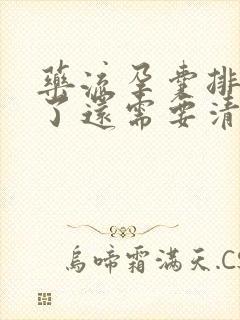 藥流孕囊排
了還需要清
烏啼霜滿天.CS